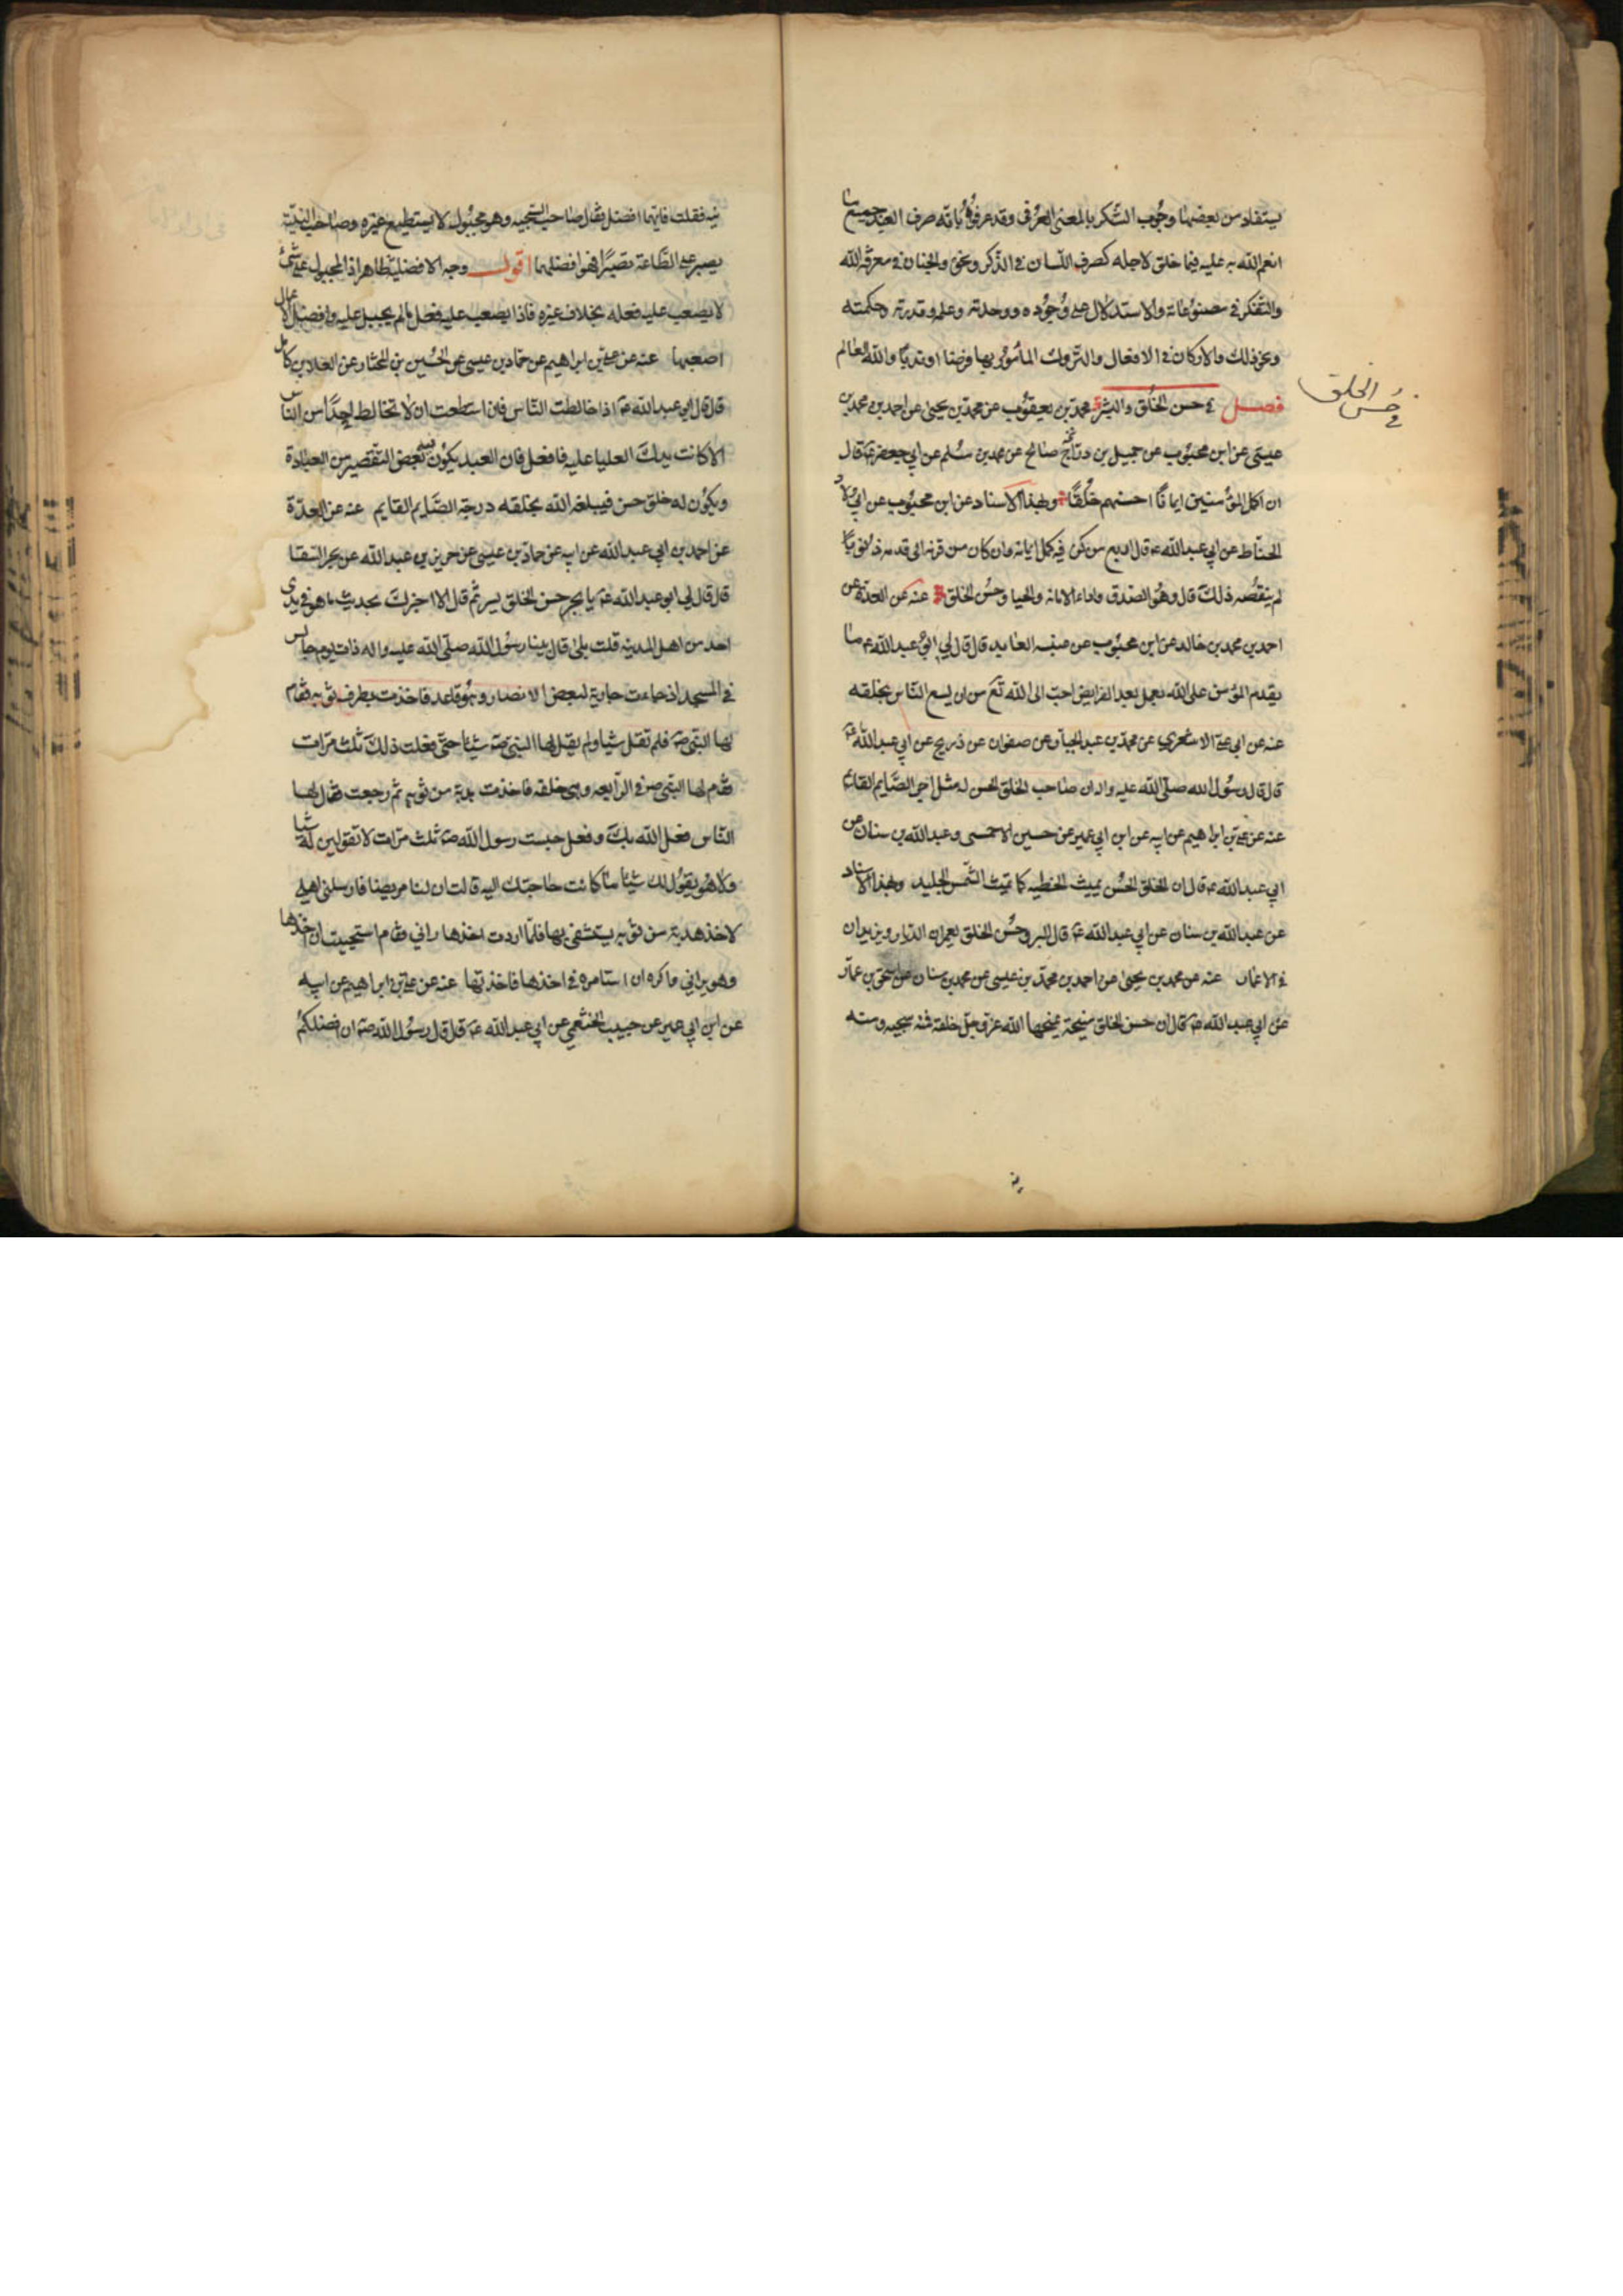 يستفاد من بعضها وجوب الشكر بالمعنى العرفي وقد عرفوه بانه صرف العبد جميع ما
انعم الله به عليه فيما خلق لاجله كصرف اللسان في الذكر ونحوه والجنان في معرفة الله
والتفكر في مصنوعاته والاستدلال على وجوده ووحدته وعلمه وقدرته وحكمته
ونحو ذلك والاركان في الافعال والتروك المأمور بها فرضا او ندبا والله العالم
فصل في حسن الخلق والبشر محمد بن يعقوب عن محمد بن يحيى عن احمد بن محمد بن
في حسن الخلق
عيسى عن ابن محبوب عن جميل بن صالح عن محمد بن مسلم عن ابي جعفر ع قال
ان اكمل المؤمنين ايمانا احسنهم خلقا وبهذا الاسناد عن ابن محبوب عن ابي ولاد
الحناط عن ابي عبدالله ع قال اربع من كن فيه كمل ايمانه وان كان من قرنه الى قدمه ذنوبا
لم ينقصه ذلك قال وهو الصدق واداء الامانة والحيا وحسن الخلق عنه عن العدة عن
احمد بن محمد بن خالد عن ابن محبوب عن عنبسه العابد قال قال لي ابو عبدالله ع ما
يقدم المؤمن على الله بعمل بعد الفرايض احب الى الله تع من ان يسع الناس بخلقه
عنه عن ابي علي الاشعري عن محمد بن عبد الجبار عن صفوان عن ذريح عن ابي عبدالله ع
قال قال رسول الله صلى الله عليه واله ان صاحب الخلق الحسن له مثل اجر الصايم القائم
عنه عن علي بن ابراهيم عن ابيه عن ابن ابي عمير عن حسين الاحمسي وعبدالله بن سنان عن
ابي عبدالله ع قال ان الخلق الحسن يميث الخطيه كما تميث الشمس الجليد وبهذا الاسناد
عن عبدالله بن سنان عن ابي عبدالله ع قال البر وحسن الخلق يعمران الديار ويزيدان
في الاعمار عنه عن محمد بن يحيى عن احمد بن محمد بن عيسى عن محمد بن سنان عن اسحق بن عمار
عن ابي عبدالله ع قال ان حسن الخلق منيحة يمنحها الله عز وجل خلقه فمنه سجيه ومنه
نيه
نيه فقلت فايتهما افضل فقال صاحب السجيه وهو مجبول لا يستطيع غيره وصاحب النية
يصبر على الطاعة تصبرا فهو افضلهما اقول وجه الافضلية ظاهر اذ المجبول على شئ
لا يصعب عليه فعله بخلاف غيره فاذا يصعب عليه فعل ما لم يجبل عليه وافضل الاعمال
اصعبها عنه عن علي بن ابراهيم عن حماد بن عيسى عن الحسين بن المختار عن العلا بن كامل
قال قال ابي عبدالله ع اذا خالطت الناس فان استطعت ان لا تخالط احدا من الناس
الا كانت يدك العليا عليه فافعل فان العبد يكون فيه بعض التقصير من العبادة
ويكون له خلق حسن فيبلغه الله بخلقه درجة الصايم القايم عنه عن العدة
عن احمد بن ابي عبدالله عن ابيه عن حماد بن عيسى عن حريز بن عبدالله عن بحر السقا
قال قال لي ابو عبدالله ع يا بحر حسن الخلق يسر ثم قال الا اخبرك بحديث ما هو في يدي
احد من اهل المدينه قلت بلى قال بينا رسول الله صلى الله عليه واله ذات يوم جالس
في المسجد اذ جاءت جارية لبعض الانصار وهو قاعد فاخذت بطرف ثوبه فقام
لها النبي ص فلم تقل شيا ولم يقل لها النبي ص شيئا حتى فعلت ذلك ثلث مرات
فقام لها النبي ص في الرابعه وهي خلفه فاخذت هدبة من ثوبه ثم رجعت فقال لها
الناس فعل الله بك وفعل حبست رسول الله ص ثلث مرات لا تقولين له شيا
ولا هو يقول لك شيئا ما كانت حاجتك اليه قالت ان لنا مريضا فارسلني اهلي
لاخذ هدبة من ثوبه يستشفى بها فلما اردت اخذها راني فقام استحييت ان اخذها
وهو يراني واكره ان استامره في اخذها فاخذتها عنه عن علي بن ابراهيم عن ابيه
عن ابن ابي عمير عن حبيب الخثعمي عن ابي عبدالله ع قال قال رسول الله ص ان افضلكم